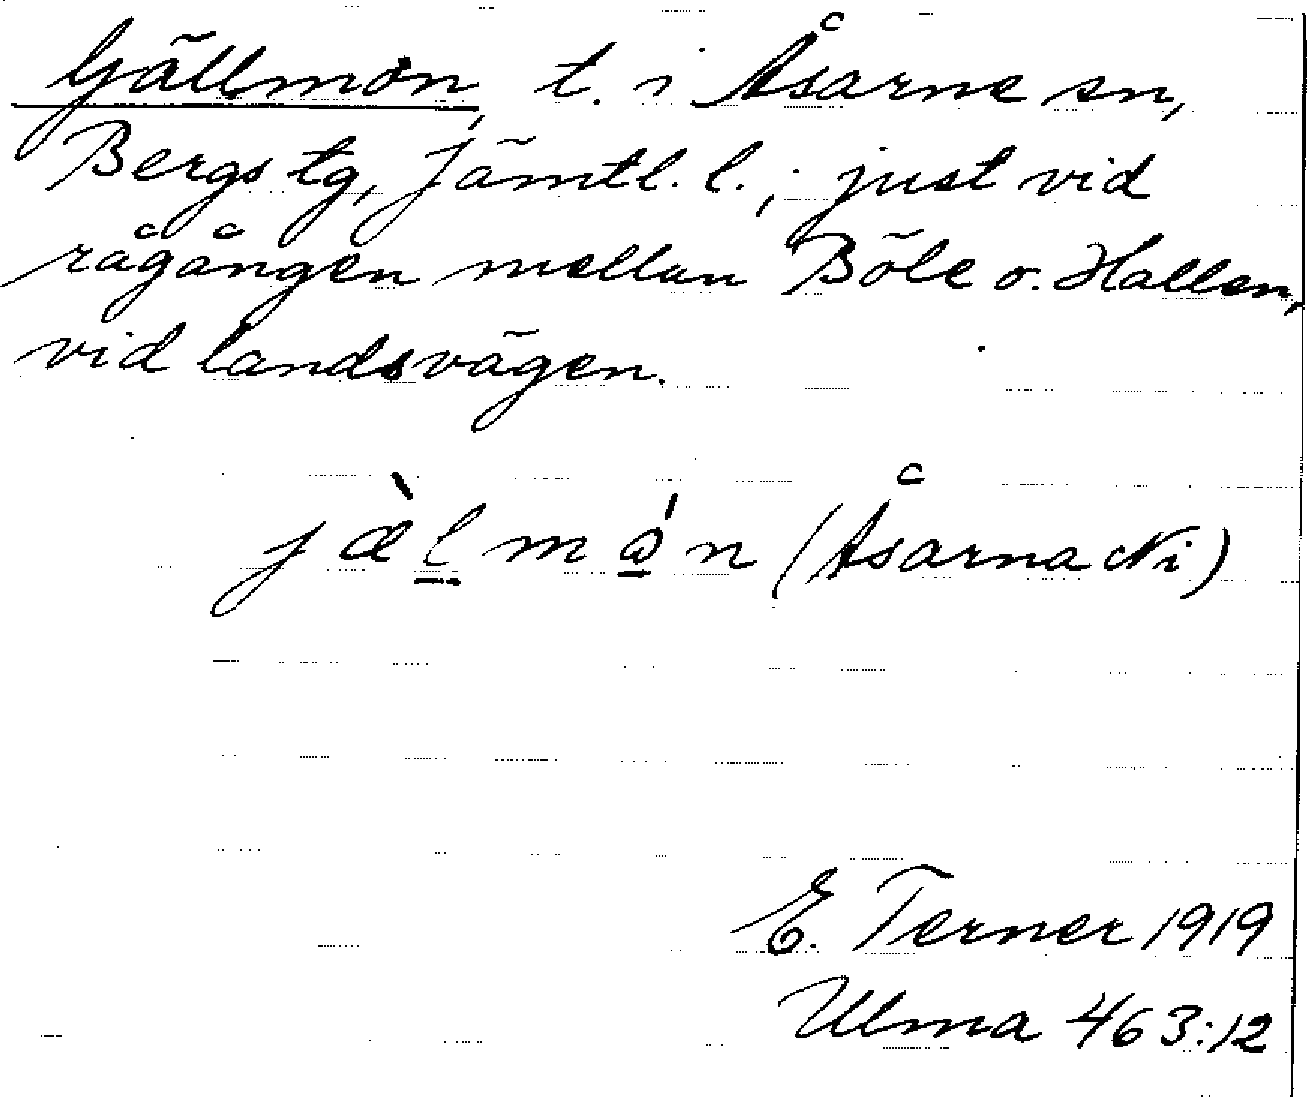 Gällmon, t. i Åsarne sn,
Bergs tg, Jämtl. l.; just vid
rågången mellan Böle o. Hallen,
vid landsvägen.
jæ̀l̲mǫ́n (Åsarna Ni)
E. Terner 1919
Ulma 463:12